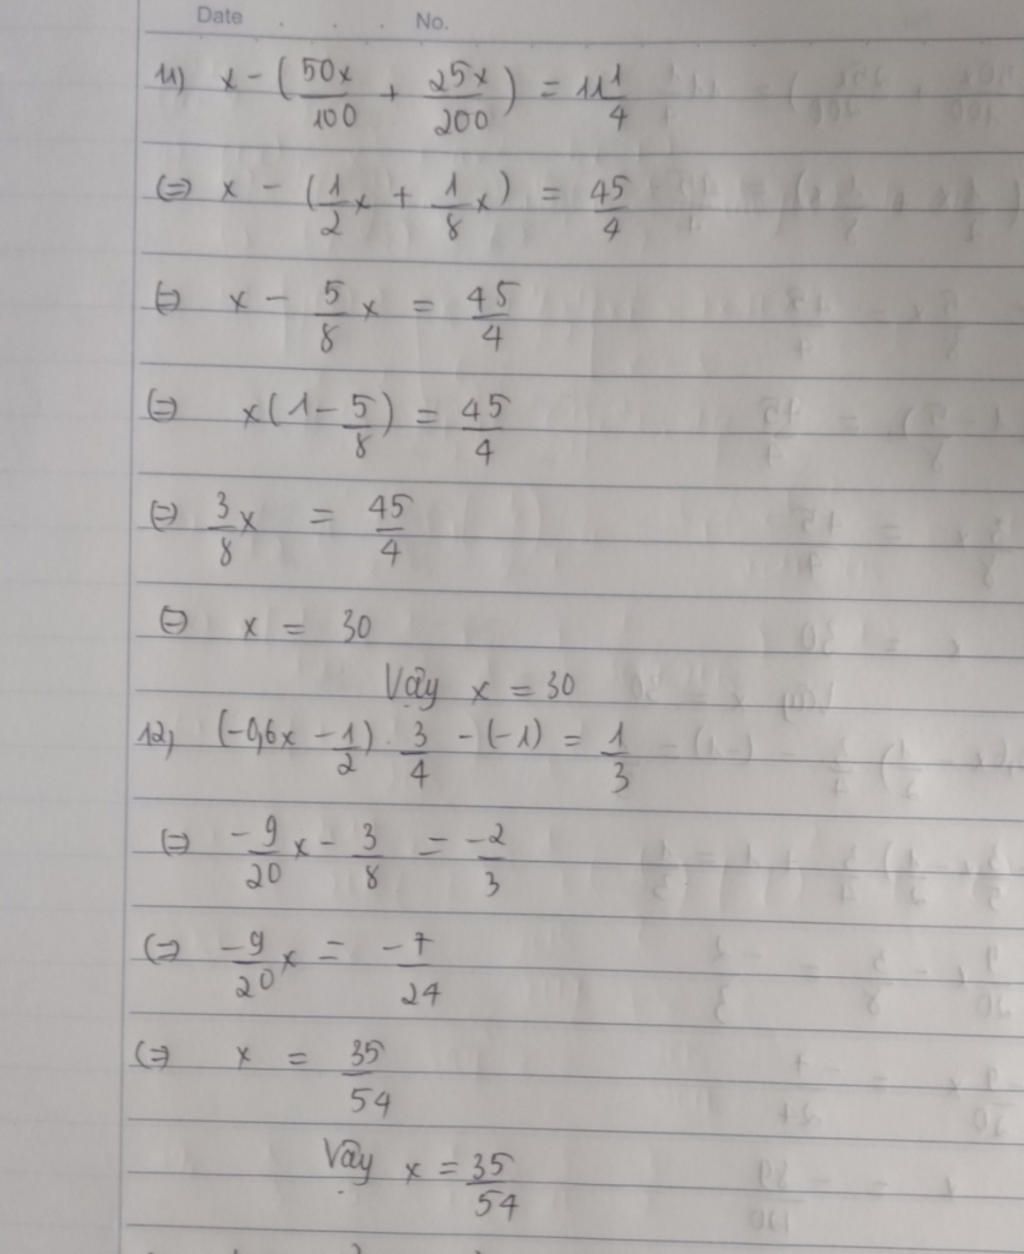 Date . . . No.
11) x - (50x/100 + 25x/200) = 11 1/4
(=) x - (1/2 x + 1/8 x) = 45/4
(=) x - 5/8 x = 45/4
(=) x(1 - 5/8) = 45/4
(=) 3/8 x = 45/4
(=) x = 30
Vậy x = 30
12) (-0,6x - 1/2) . 3/4 - (-1) = 1/3
(=) -9/20 x - 3/8 = -2/3
(=) -9/20 x = -7/24
(=) x = 35/54
Vậy x = 35/54